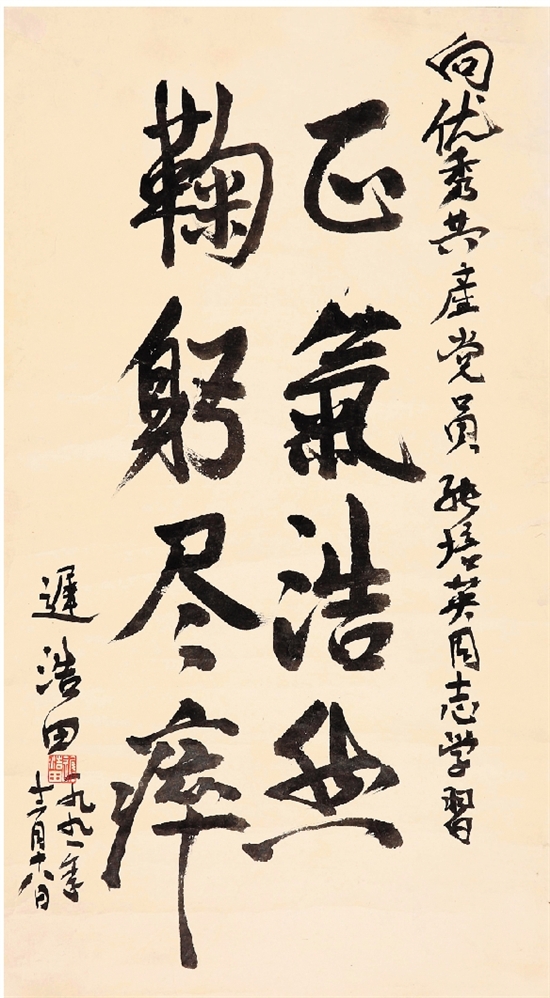 向优秀共產党员培英同志学習
正氣浩然
鞠躬尽瘁
遲浩田
一九九一年
十二月十八日